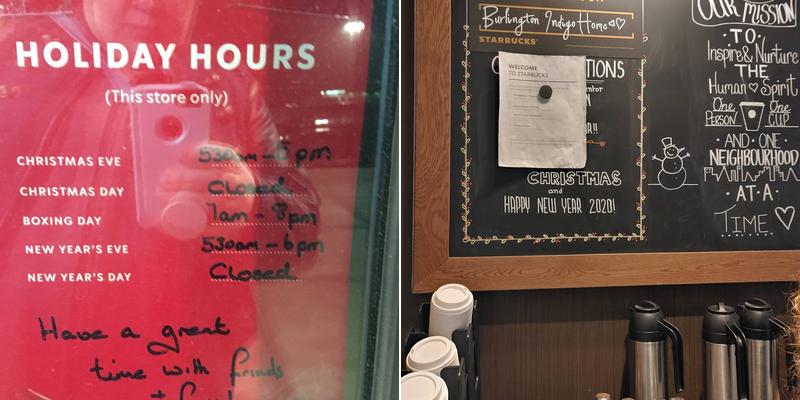 HOLIDAY HOURS
(This store only)
CHRISTMAS EVE 530am - 5pm
CHRISTMAS DAY Closed
BOXING DAY 7am - 8pm
NEW YEAR'S EVE 530am - 6pm
NEW YEAR'S DAY Closed
Have a great
time with friends
Burlington Indigo Home
STARBUCKS
WELCOME
TO STARBUCKS
CHRISTMAS
and
HAPPY NEW YEAR 2020!
OUR MISSION
TO:
Inspire & Nurture
THE
Human Spirit
One PERSON One CUP
AND ONE
NEIGHBOURHOOD
AT A
TIME